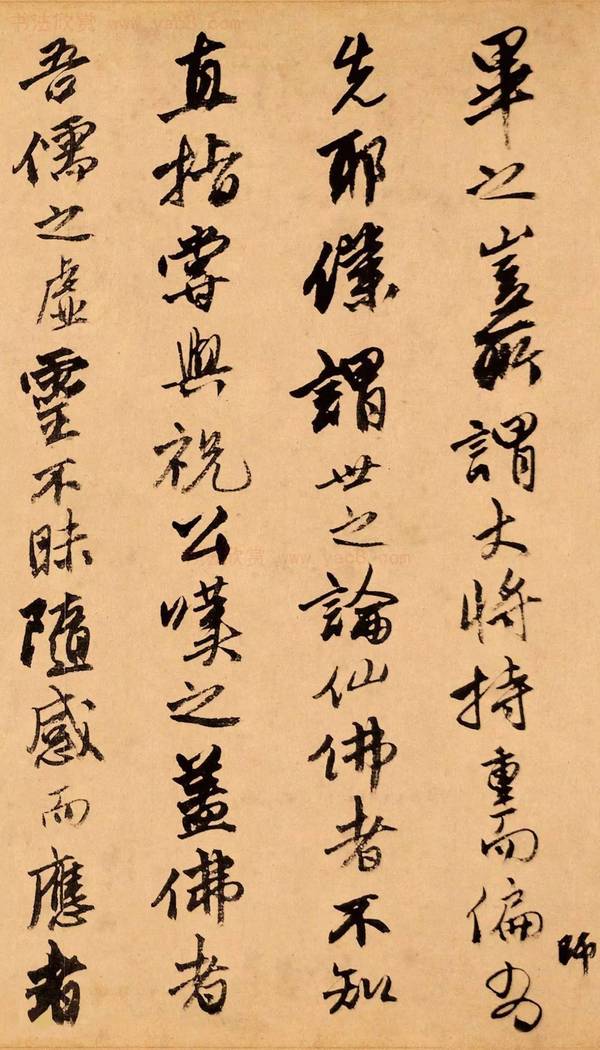 畢之豈所謂大將持重而偏師為
先耶僕謂世之論仙佛者不知
直指嘗與祝公嘆之蓋佛者
吾儒之虛靈不昧隨感而應者
书法欣赏 www.yac8.com
书法欣赏 www.yac8.com